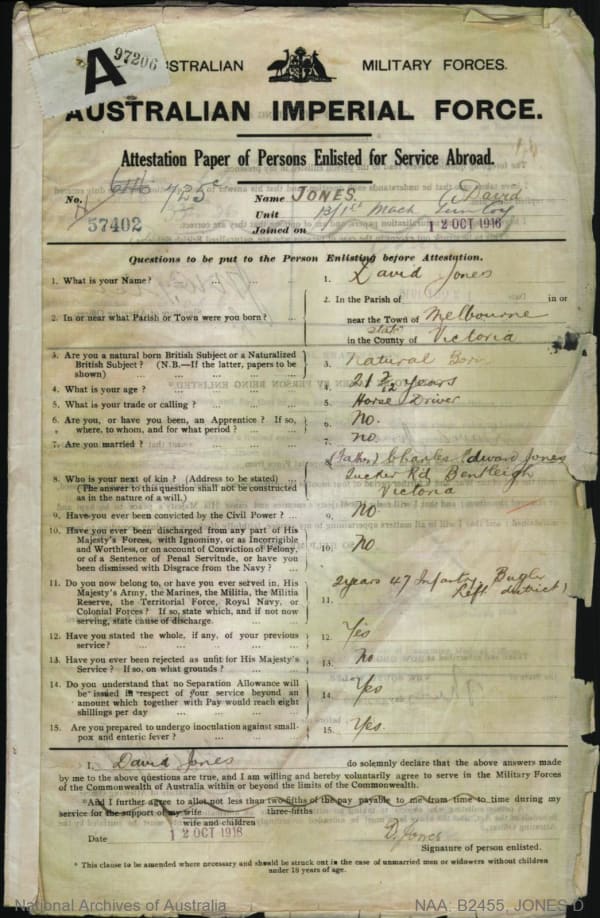 A 97206
AUSTRALIAN MILITARY FORCES.
AUSTRALIAN IMPERIAL FORCE.
Attestation Paper of Persons Enlisted for Service Abroad.
No. 725c Name JONES. David
57402 Unit 13/1st Mach Gun Coy
Joined on 12 OCT 1916
Questions to be put to the Person Enlisting before Attestation.
1. What is your Name? ... ... ... 1. David Jones
2. In or near what Parish or Town were you born? ... 2. In the Parish of in or
near the Town of Melbourne
State
in the County of Victoria
3. Are you a natural born British Subject or a Naturalized
British Subject? (N.B.—If the latter, papers to be
shown) ... ... ... 3. Natural Born
4. What is your age? ... ... ... 4. 21 7/12 years
5. What is your trade or calling? ... ... 5. Horse Driver
6. Are you, or have you been, an Apprentice? If so,
where, to whom, and for what period? ... 6. No.
7. Are you married? ... ... ... 7. no
8. Who is your next of kin? (Address to be stated) ...
(The answer to this question shall not be constructed
as in the nature of a will.) 8. (Father) Charles Edward Jones
Tucker Rd Bentleigh
Victoria
9. Have you ever been convicted by the Civil Power? ... 9. No
10. Have you ever been discharged from any part of His
Majesty's Forces, with Ignominy, or as Incorrigible
and Worthless, or on account of Conviction of Felony,
or of a Sentence of Penal Servitude, or have you
been dismissed with Disgrace from the Navy? ... 10. No
11. Do you now belong to, or have you ever served in, His
Majesty's Army, the Marines, the Militia, the Militia
Reserve, the Territorial Force, Royal Navy, or
Colonial Forces? If so, state which, and if not now
serving, state cause of discharge. ... 11. 2 years 47 Infantry Bugler
Left district
12. Have you stated the whole, if any, of your previous
service? ... ... ... 12. Yes
13. Have you ever been rejected as unfit for His Majesty's
Service? If so, on what grounds? ... 13. No
14. Do you understand that no Separation Allowance will
be issued in respect of your service beyond an
amount which together with Pay would reach eight
shillings per day ... ... ... 14. Yes
15. Are you prepared to undergo inoculation against small-
pox and enteric fever? ... ... 15. Yes.
I, David Jones do solemnly declare that the above answers made
by me to the above questions are true, and I am willing and hereby voluntarily agree to serve in the Military Forces
of the Commonwealth of Australia within or beyond the limits of the Commonwealth.
*And I further agree to allot not less than two-fifths of the pay payable to me from time to time during my
three-fifths
service for the support of my wife
wife and children
Date 12 OCT 1916 D. Jones
Signature of person enlisted.
* This clause to be amended where necessary and should be struck out in the case of unmarried men or widowers without children
under 18 years of age.
National Archives of Australia NAA: B2455, JONES D